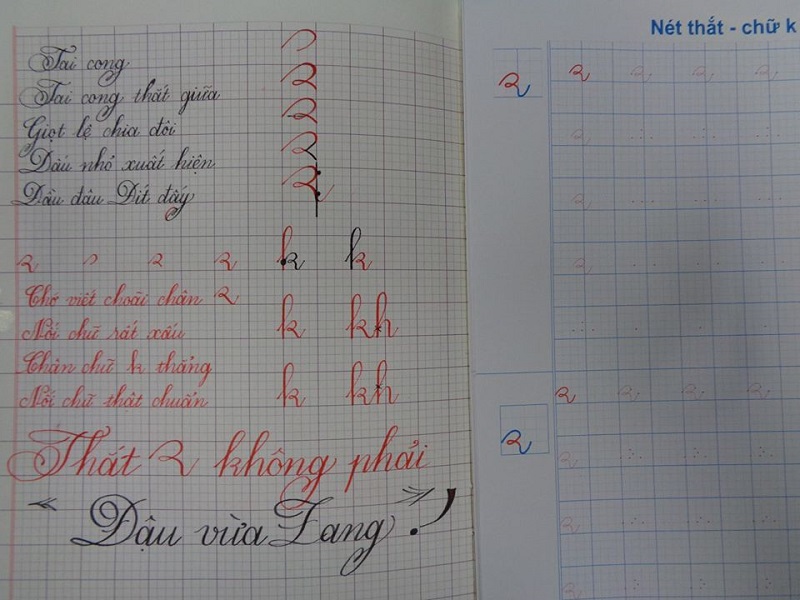 Tai cong
Tai cong thắt giữa
Giọt lệ chia đôi
Dấu nhỏ xuất hiện
Đầu đâu Đít đấy
k k
Chớ viết choãi chân
Nối chữ rất xấu
k kh
Chân chữ k thẳng
Nối chữ thật chuẩn
k kh
Thắt không phải
"Đậu vừa Lang"
Nét thắt - chữ k